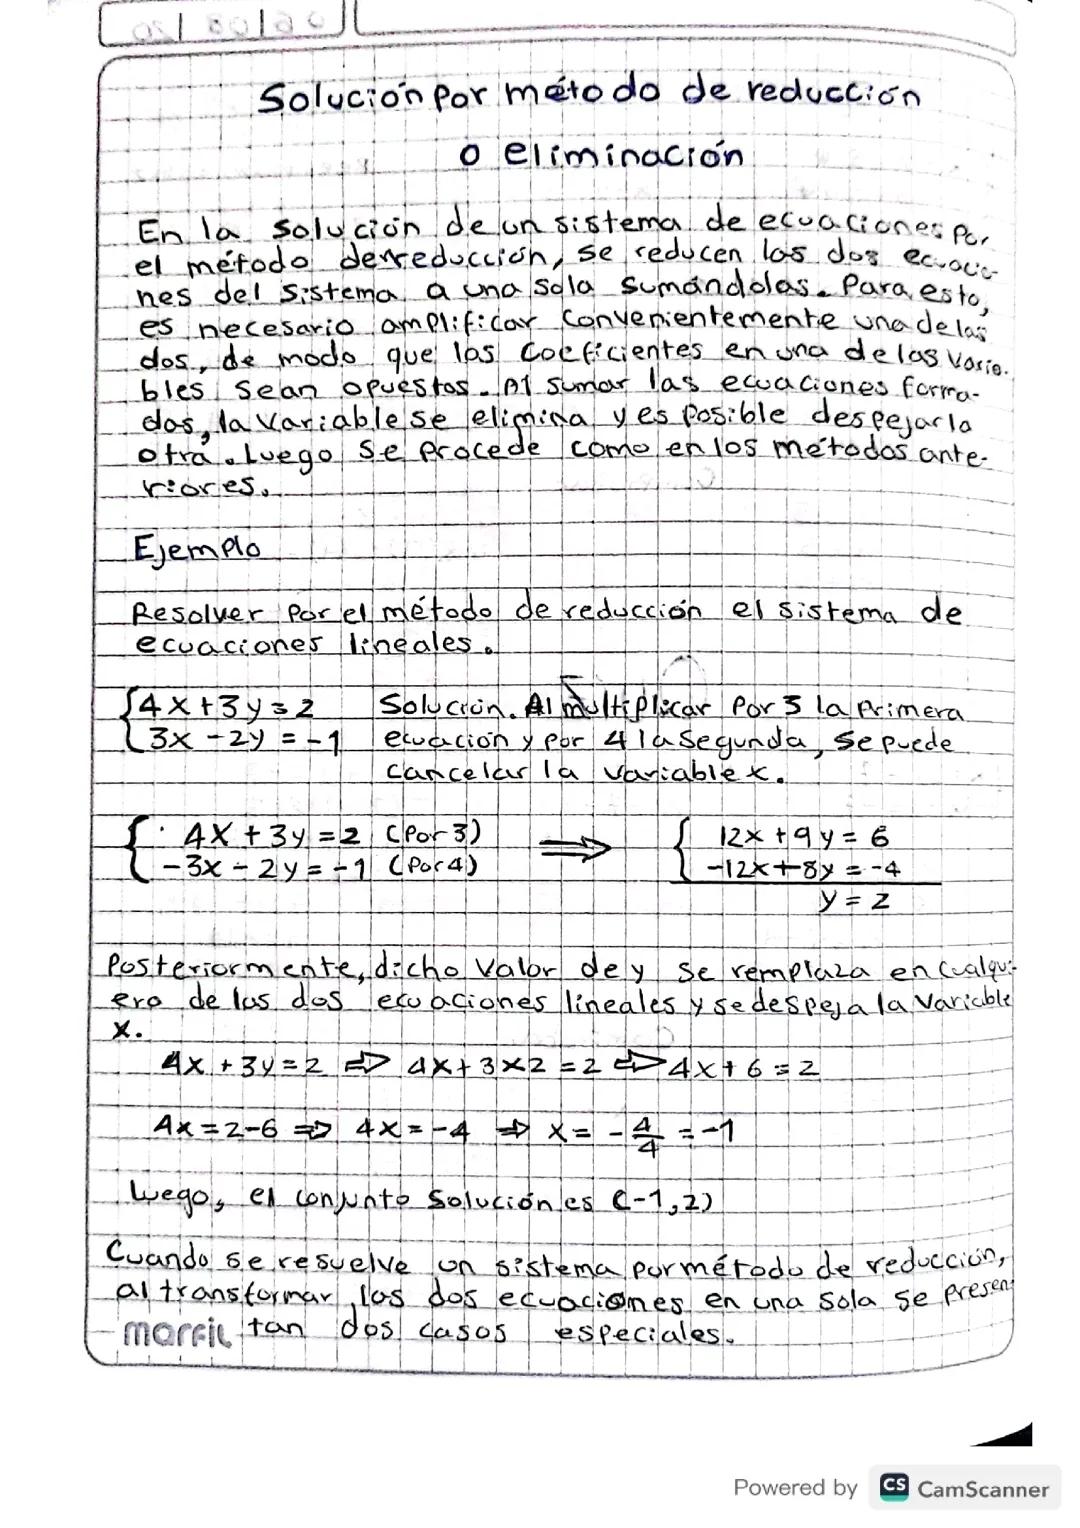 Solución por método de reducción
o eliminación
En la solución de un sistema de ecuaciones por
el método de reducción, se reducen las dos ecuacio-
nes del sistema a una sola sumándolas. Para esto,
es necesario amplificar convenientemente una de las
dos, de modo que los coeficientes en una de las varia-
bles sean opuestas. Al sumar las ecuaciones forma-
das, la variable se elimina y es posible despejar la
otra. Luego se procede como en los métodos ante-
riores.
Ejemplo
Resolver por el método de reducción el sistema de
ecuaciones lineales.
{4x+3y=2 Solución. Al multiplicar por 3 la primera
{3x-2y=-1 ecuación y por 4 la segunda, se puede
cancelar la variable x.
{4x+3y=2 (Por 3) ⇒ {12x+9y=6
{-3x-2y=-1 (Por 4) {-12x+8y=-4
y=2
Posteriormente, dicho valor de y se remplaza en cualqui-
era de las dos ecuaciones lineales y se despeja la variable
x.
4x+3y=2 ⇒ 4x+3×2=2 ⇒ 4x+6=2
4x=2-6 ⇒ 4x=-4 ⇒ x=-4/4=-1
Luego, el conjunto solución es (-1,2)
Cuando se resuelve un sistema por método de reducción,
al transformar las dos ecuaciones en una sola se presen
marfil tan dos casos especiales.
Powered by CS CamScanner